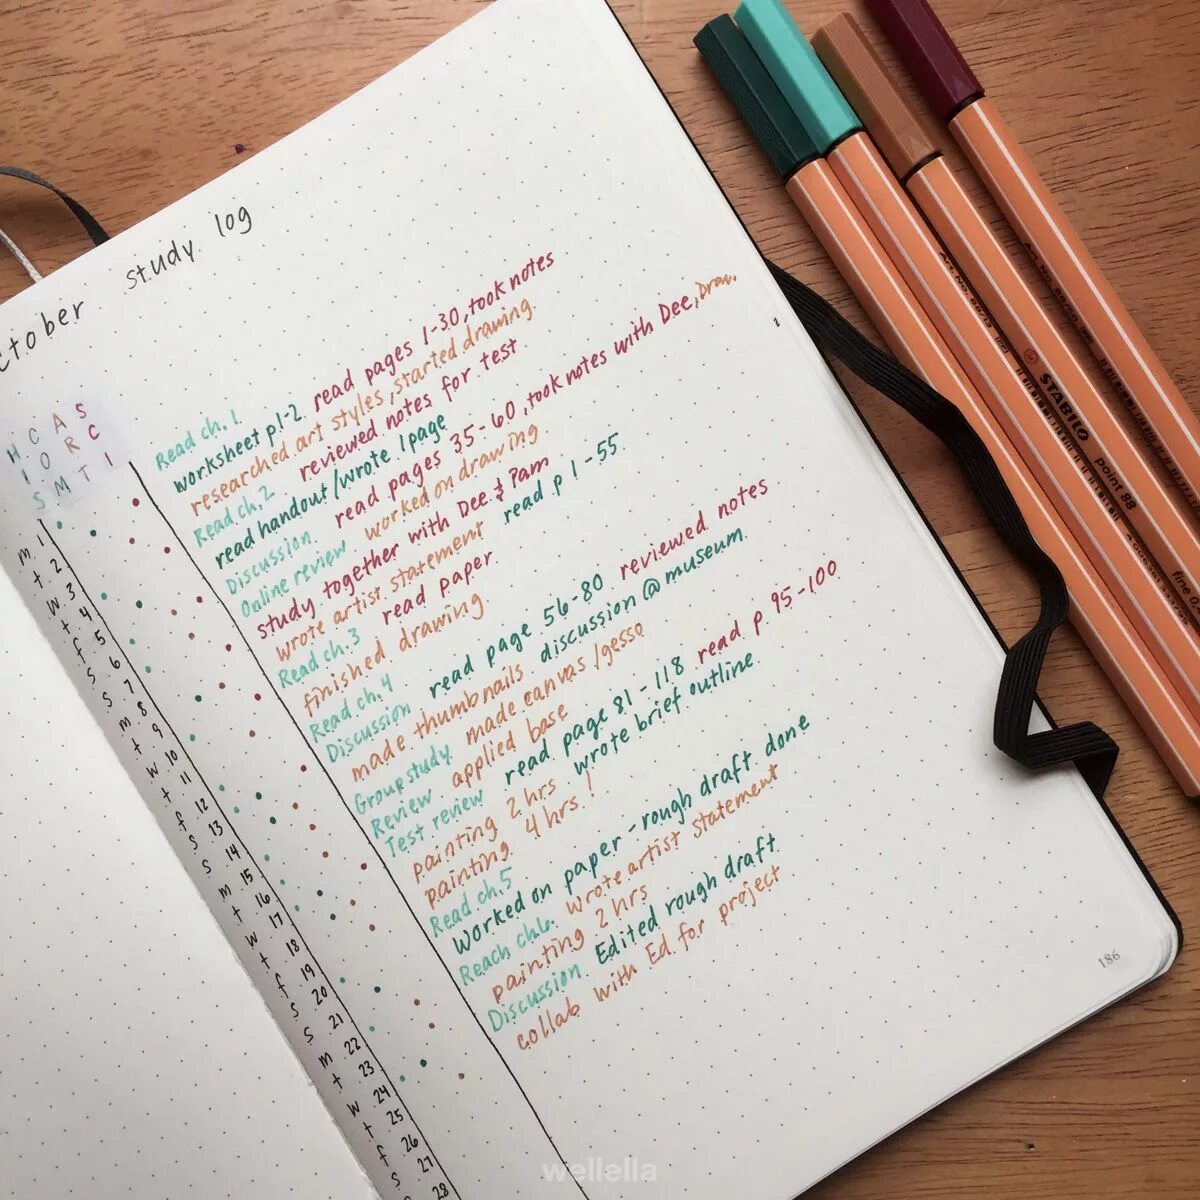 ctober study log
H C A S
I O R C
S M T I
m 1
t 2
w 3
t 4
f 5
s 6
s 7
m 8
t 9
w 10
t 11
f 12
s 13
s 14
m 15
t 16
w 17
t 18
f 19
s 20
s 21
m 22
t 23
w 24
t 25
f 26
s 27
s 28
Read ch. 1
worksheet p1-2 read pages 1-30, took notes
researched art styles, started drawing
Read ch. 2 reviewed notes for test
read handout/wrote 1 page
Discussion read pages 35-60, took notes with Dee,
Online review worked on drawing
study together with Dee & Pam
wrote artist statement read p 1-55
Read ch. 3 read paper
finished drawing.
Read ch. 4
Discussion read page 56-80 reviewed notes
made thumbnails discussion @ museum.
Group study made canvas/gesso
Review applied base
Test review read page 81-118 read p. 95-100
painting 2 hrs wrote brief outline.
painting 4 hrs !
Read ch. 5
Worked on paper - rough draft. done
Reach ch6. wrote artist statement
painting 2 hrs
Discussion Edited rough draft
collab with Ed for project
186
STABILO point 88
wellella